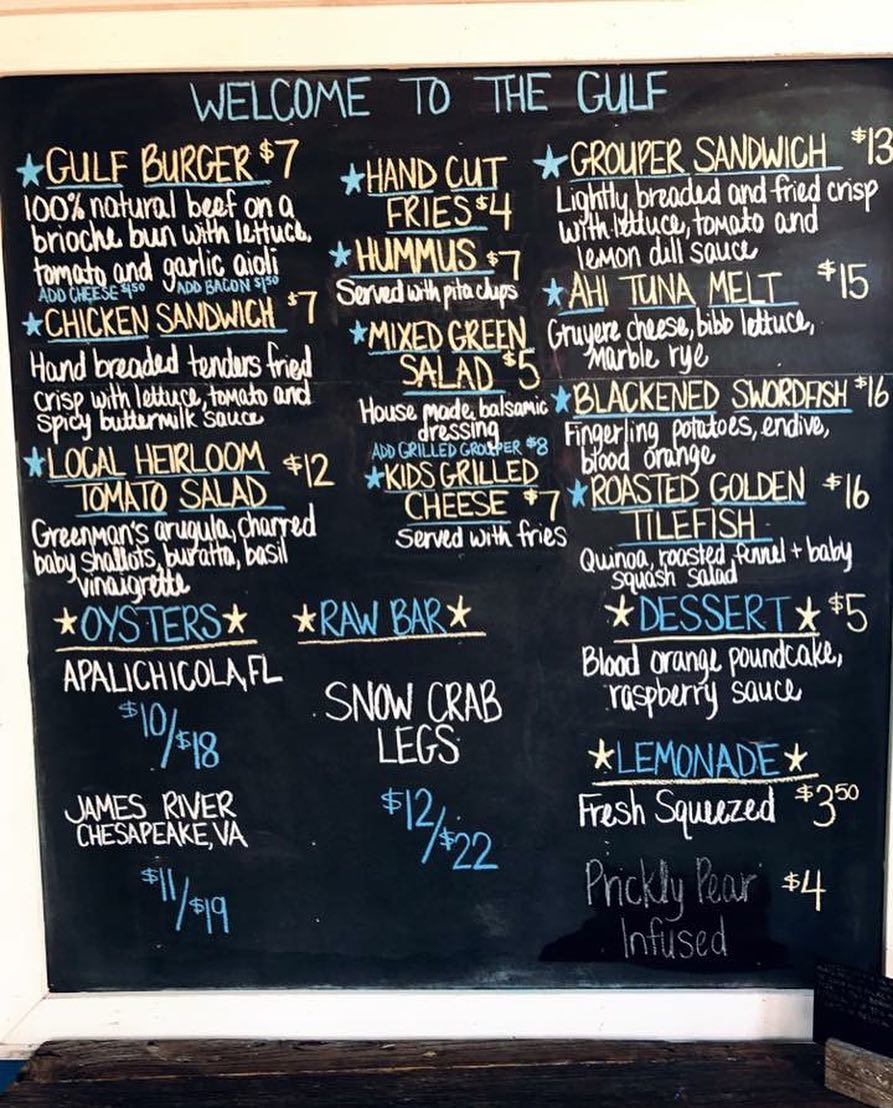 WELCOME TO THE GULF
GULF BURGER $7
100% natural beef on a
brioche bun with lettuce,
tomato and garlic aioli
ADD CHEESE $1.50 ADD BACON $1.50
CHICKEN SANDWICH $7
Hand breaded tenders fried
crisp with lettuce, tomato and
spicy buttermilk sauce
LOCAL HEIRLOOM $12
TOMATO SALAD
Greenman's arugula, charred
baby shallots, buratta, basil
vinaigrette
HAND CUT
FRIES $4
HUMMUS $7
Served with pita chips
MIXED GREEN
SALAD $5
House made balsamic
dressing
ADD GRILLED GROUPER $8
KIDS GRILLED
CHEESE $7
Served with fries
GROUPER SANDWICH $13
Lightly breaded and fried crisp
with lettuce, tomato and
lemon dill sauce
AHI TUNA MELT $15
Gruyere cheese, bibb lettuce,
Marble rye
BLACKENED SWORDFISH $16
Fingerling potatoes, endive,
blood orange
ROASTED GOLDEN $16
TILEFISH
Quinoa, roasted fennel + baby
squash salad
OYSTERS
APALICHICOLA, FL
$10/$18
JAMES RIVER
CHESAPEAKE, VA
$11/$19
RAW BAR
SNOW CRAB
LEGS
$12/$22
DESSERT $5
Blood orange poundcake,
raspberry sauce
LEMONADE
Fresh Squeezed $3.50
Prickly Pear $4
Infused